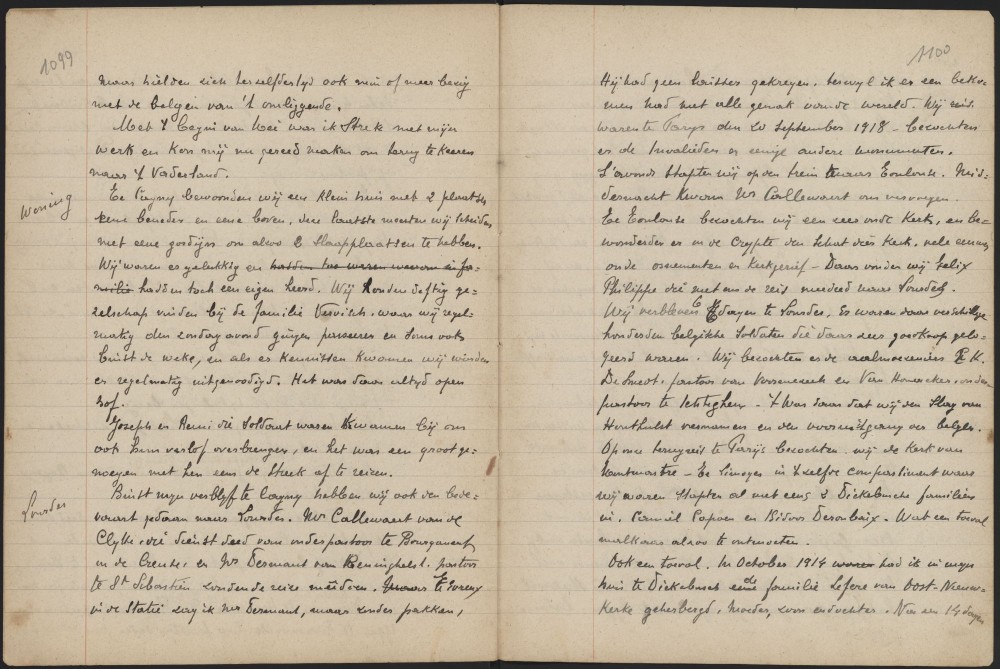 1099
maar hielden zich terzelfdertyd ook min of meer bezig
met de belgen van 't omliggende.
Met 't begin van Mei was ik Strek met mijn
werk en kon mij nu gereed maken om terug te keeren
naar 't Vaderland.
Woning
Te Cayny bewoonden wij een klein huis met 2 plaatsen
eene beneden en eene boven, deze laatste moesten wij scheiden
met eene gordijn om alzoo 2 slaapplaatsen te hebben.
Wij waren er gelukkig en hadden toch een eigen heerd. Wij vonden deftig ge=
zelschap vinden bij de familie Verwilch, waar wij regel=
matig den zondag avond gingen passeeren en soms ook
binst de weke, en als er kennissen kwamen wij wierden
er regelmatig uitgenoodigd. Het was daar altyd open
hof.
Joseph en Remi die Soldaat waren kwamen bij ons
ook hun verlof overbrengen, en het was een groot ge=
noegen met hen eens de Streek af te reizen.
Lourdes
Binst mijn verblijf te Cayny hebben wij ook den bede=
vaart gedaan naar Lourdes. Mr Callewaert van de
Clytte, die dienst deed van onderpastoor te Bourganeuf
in de Creuse, en Mr Dermaut van Reninghelst, pastoor
te St Sebastien zouden de reize meêdoen. Te Evreux
in de Statie zag ik Mr Dermaut, maar zonder pakken,
1100
Hij had geen laisser gekregen, terwyl ik er een beko=
men had met alle gemak van de wereld. Wij
waren te Parys den 20 September 1918 - bezochten
er de Invalieden en eenige andere monumenten.
S'avonds stapten wij op den trein naar Toulouse. Mid=
dernacht kwam Mr Callewaert ons vervoegen.
Te Toulouse bezochten wij een zeer oude kerk, en be=
wonderden er in de Crypte den Schat dier kerk, vele eeuwen
oude ornementen en kerkgerief - Daar vonden wij Felix
Philippe die met ons de reis meedeed naar Lourdes.
Wij verbleven dagen te Lourdes, Er waren daar verschillige
honderden belgische Soldaten die daar zeer goedkoop gelo=
geerd waren. Wij bezochten er de aalmoezeniers K.
De Smedt, pastoor van Vosseneeck en Van Houcke, onder
pastoor te Ichtighem - 't Was daar dat wij den Slag van
Houthulst vernamen en den vooruitgang der belgen.
Op onze terugreis te Parijs bezochten wij de kerk van
Montmartre - Te Limoges in 't zelfde compartiment waar
wij waren Stapten al met eens 2 Dickebusche familien
in, Camiel Capoen en Bidoor Deroubaix. Wat een toeval
malkaar alzoo te ontmoeten.
Ook een toeval. In October 1914 had ik in myn
huis te Dickebusch de familie Lefere van Oost-Nieuw=
kerke geherbergd, moeder, zoon en dochter. Na een 14 dagen